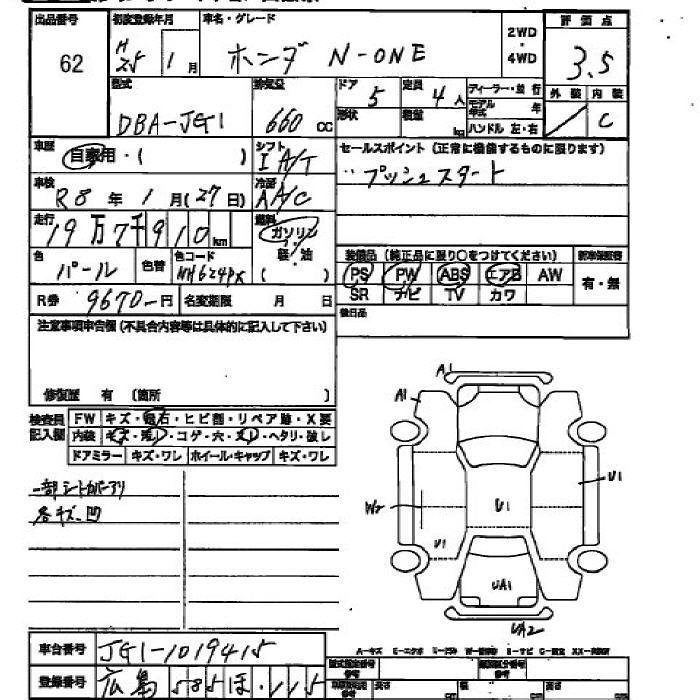 出品番号 初度登録年月 車名・グレード 2WD・4WD 評価点
62 H25 1月 ホンダ N-ONE 3.5
型式 排気量 ドア 定員 ディーラー・並行 外装 内装
DBA-JG1 660cc 5 4人 モデル年式 年 C
形状 積量 kg ハンドル 左・右
車歴 自家用・( ) シフト I A/T セールスポイント (正常に機能するものに限ります)
車検 R8年1月(27日) 冷房 AA/C プッシュスタート
走行 19万7千910km 燃料 ガソリン 軽・油 ( )
色 パール 色替 色コード NH624PX
装備品 (純正品に限り○をつけてください) 新車保証書
PS PW ABS エアB AW 有・無
SR ナビ TV カワ
R券 9670-円 名変期限 月 日
後日品
注意事項申告欄 (不具合内容等は具体的に記入して下さい)
修復歴 有 (箇所 )
検査員記入欄 FW キズ・飛石・ヒビ割・リペア跡・X要
内装 キズ・汚レ・コゲ・穴・スレ・ヘタリ・破レ
ドアミラー キズ・ワレ ホイール・キャップ キズ・ワレ
一部シートカバーアリ
各キズ、凹
A1
A1
W2 U1 U1
U1
UA1
UA2
車台番号 JG1-1019415
登録番号 広島 585 ほ ・115